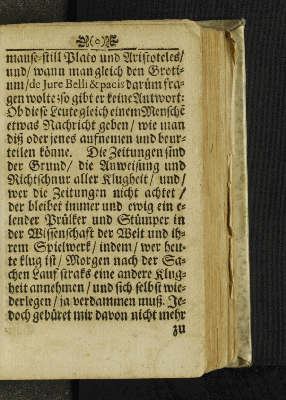 mause-still Plato und Aristoteles/
und/ wann man gleich den Groti-
um/ de Jure Belli & pacis darüm fra-
gen wolte: so gibt er keine Antwort:
Ob diese Leute gleich einem Mensche͂
etwas Nachricht geben/ wie man
diß oder jenes aufnemen und beur-
teilen könne. Die Zeitungen sind
der Grund/ die Anweisung und
Richtschnur aller Klugheit/ und/
wer die Zeitungen nicht achtet/
der bleibet immer und ewig ein e-
lender Prülker und Stümper in
der Wissenschaft der Welt und ih-
rem Spielwerk/ indem/ wer heu-
te klug ist/ Morgen nach der Sa-
chen Lauf straks eine andere Klug-
heit annehmen/ und sich selbst wie-
derlegen/ ja verdammen muß. Je-
doch gebüret mir davon nicht mehr
zu